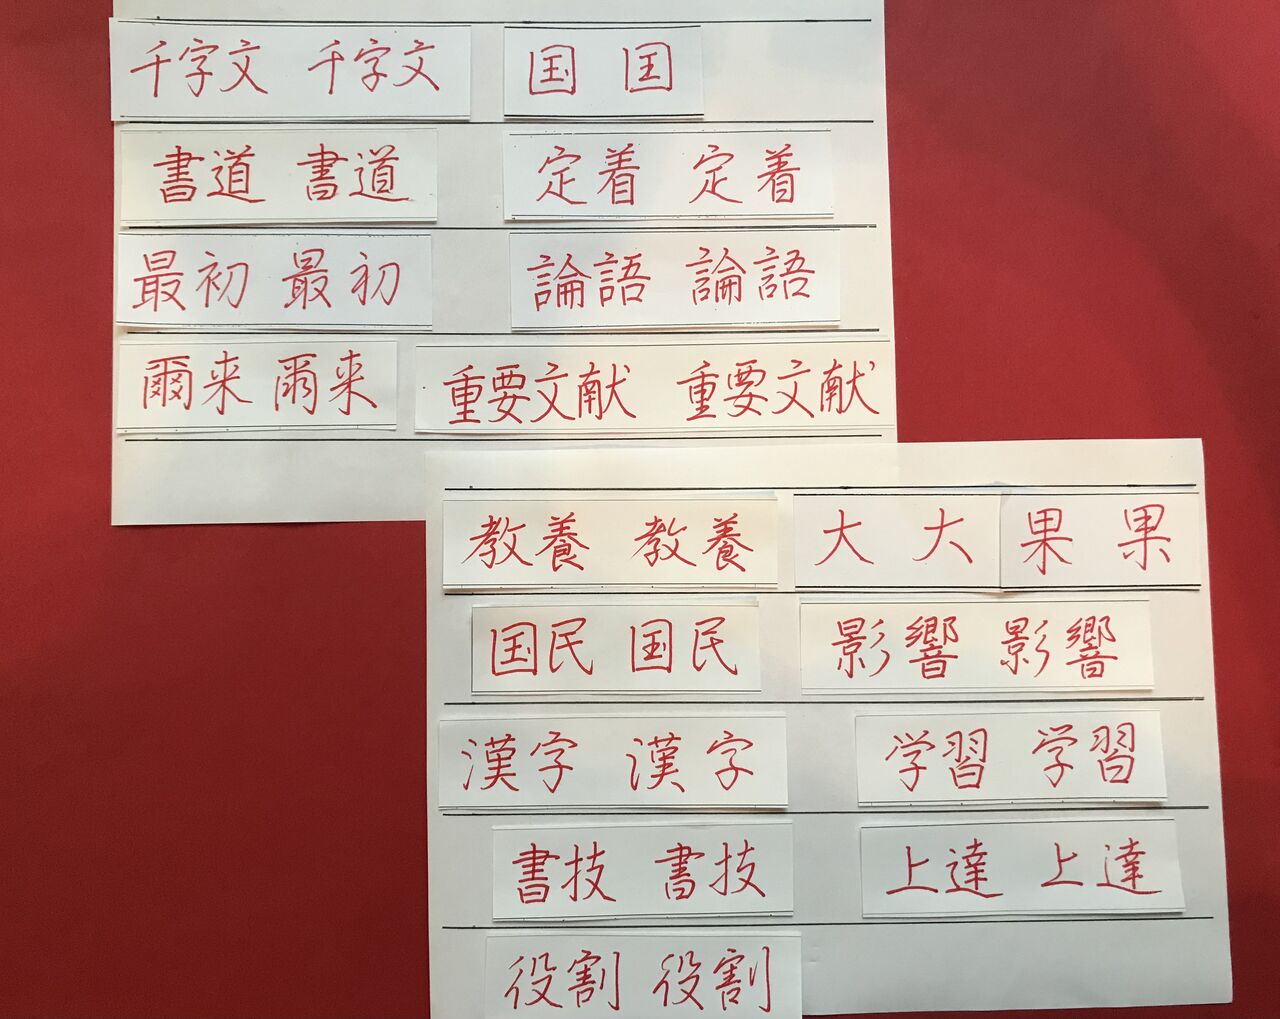 千字文 千字文 国 国
書道 書道 定着 定着
最初 最初 論語 論語
爾来 爾来 重要文献 重要文献
教養 教養 大 大 果 果
国民 国民 影響 影響
漢字 漢字 学習 学習
書技 書技 上達 上達
役割 役割